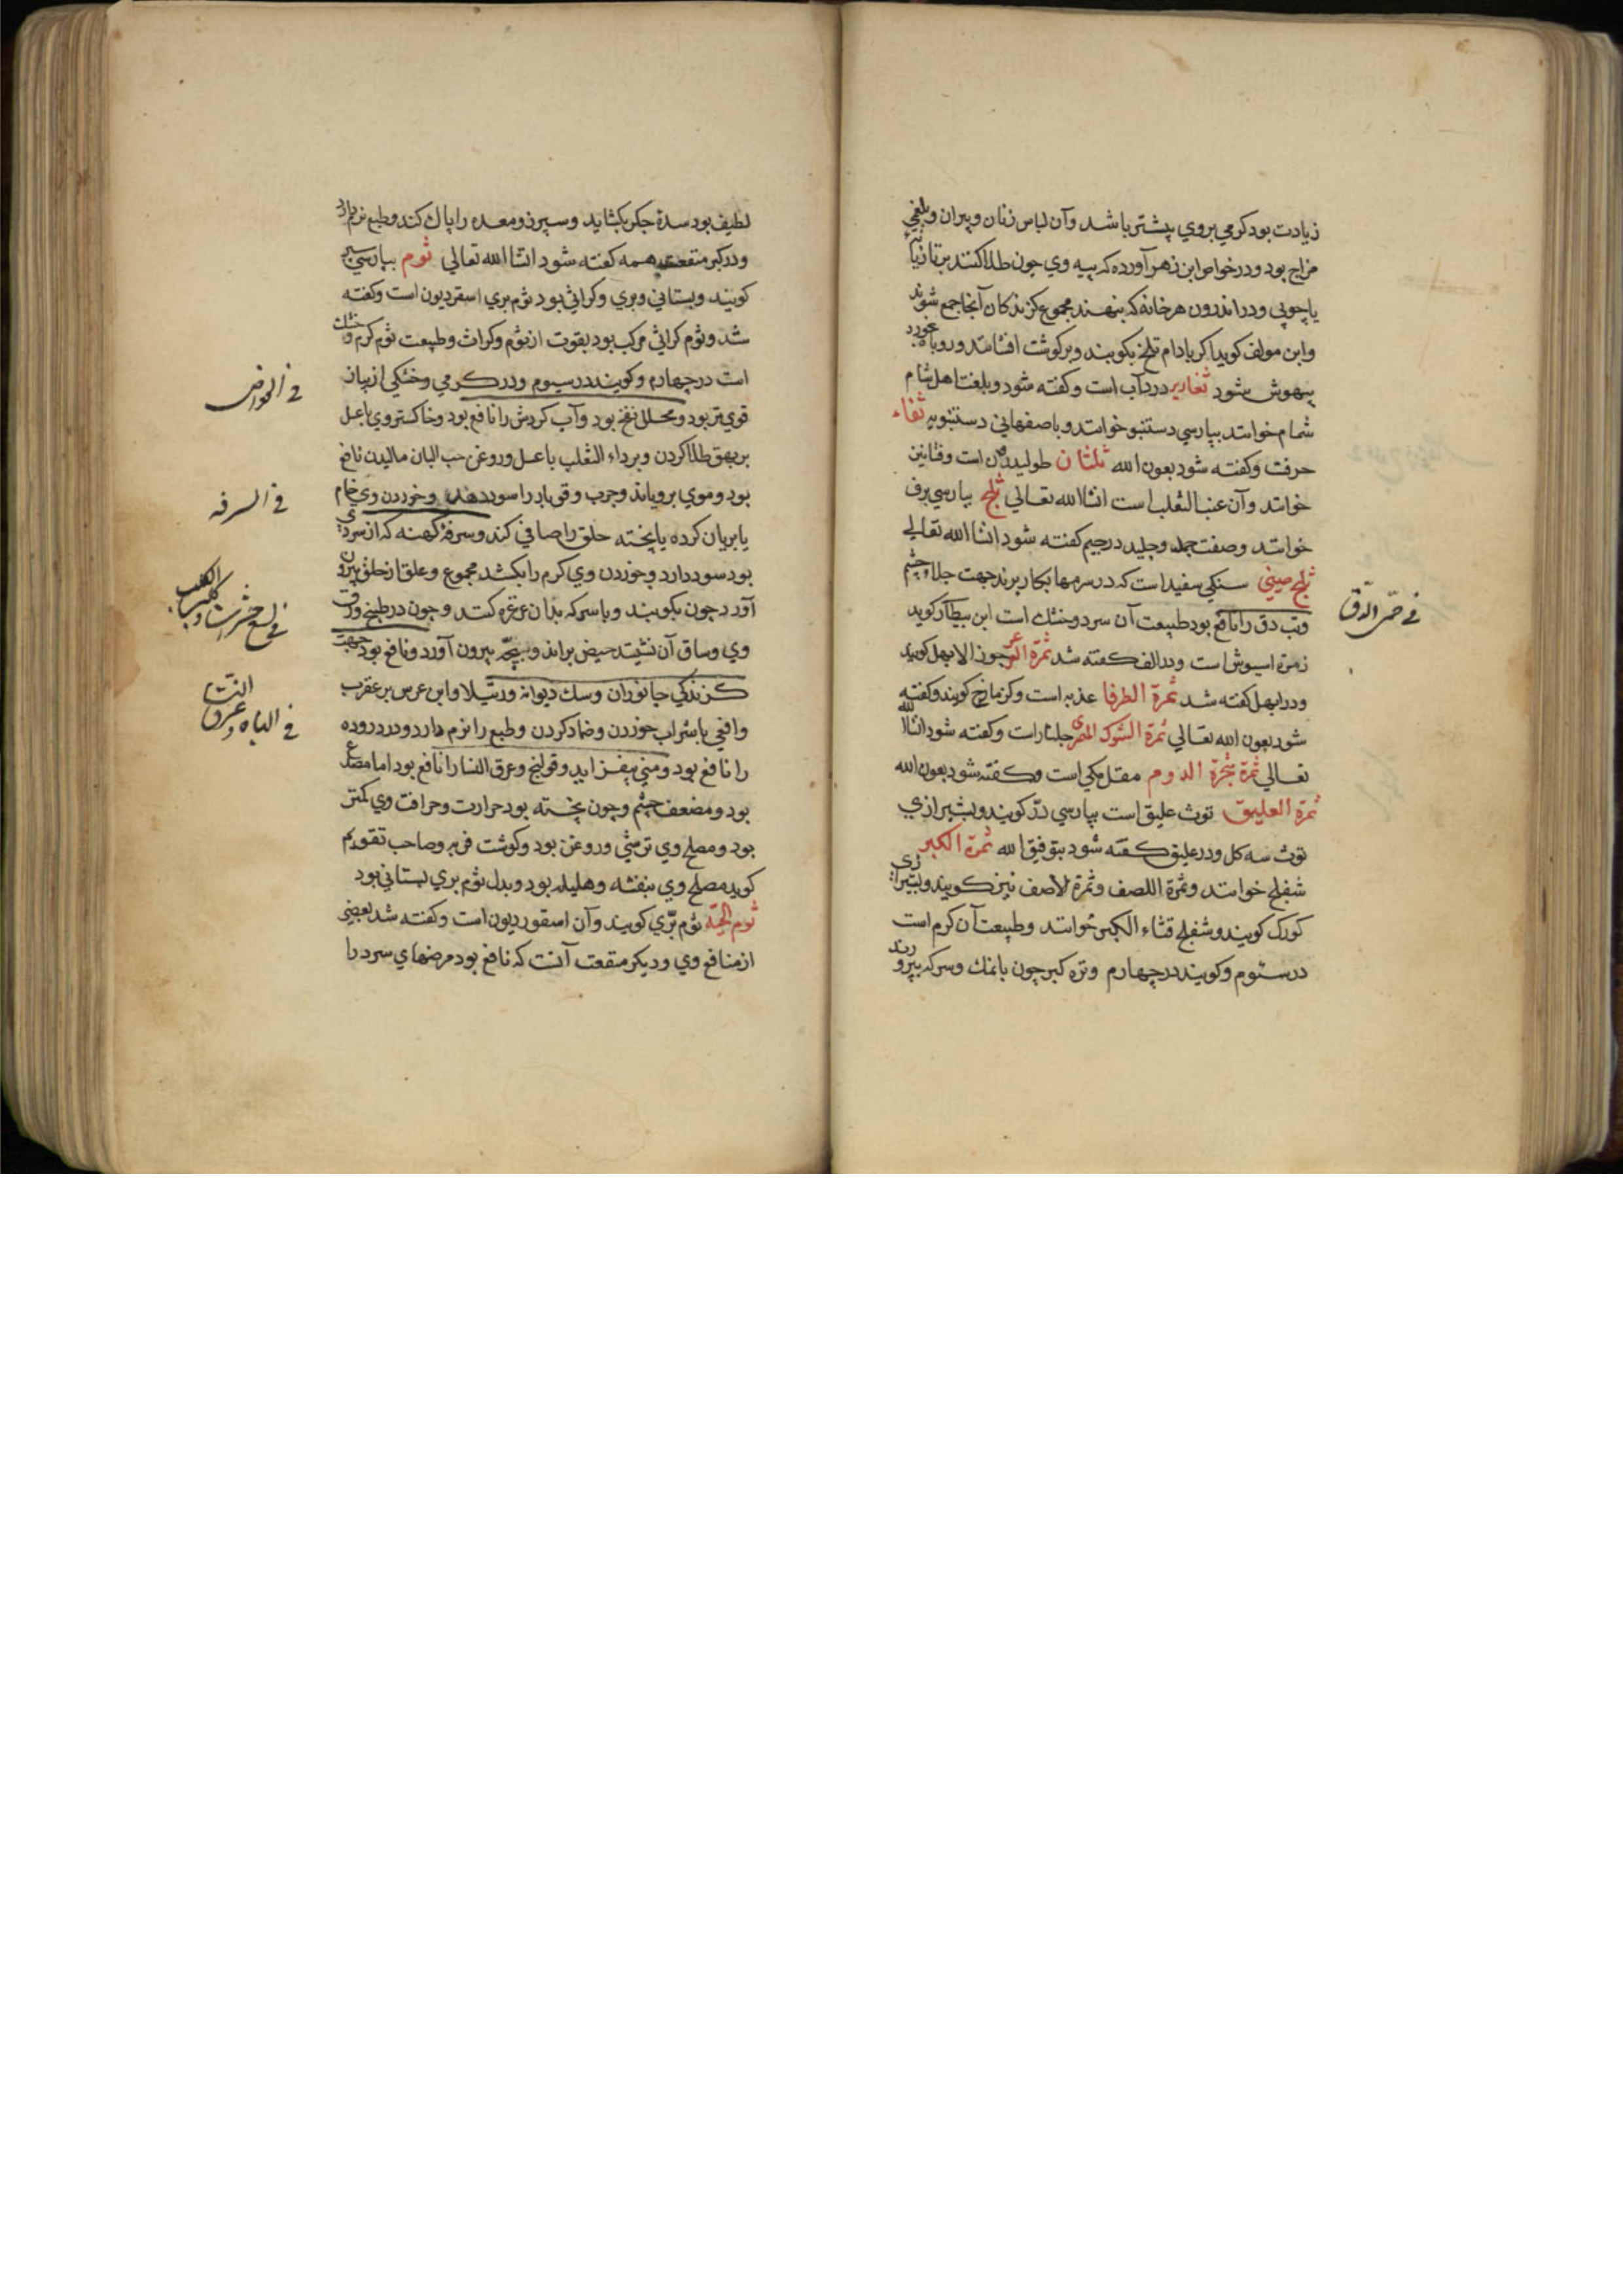 زيادت بود كرمي بروي بيشتر باشد وآن لباس زنان وپيران وبلغمي
مزاج بود ودر خواص ابن زهر آورده كه پيه وي چون طلا كنند برتازيانه
يا چوبي ودر اندرون هر خانه كه بنهند مجموع كزندكان آنجا جمع شوند
وابن مولف كويد اكر بادام تلخ بكوبند وبر كوشت افشانند وروباه بخورد
بيهوش شود ثغارير در دآب است وكفته شود وبلغت اهل شام
شمام خوانند بپارسي دستنبو خوانند وباصفهاني دستنبويه ثفاء
حرفت وكفته شود بعون الله ثلثان طوليدون است وفنابين
خوانند وآن عنب الثعلب است انشا الله تعالي ثلج بپارسي برف
خوانند وصفت جمد وجليد در جيم كفته شود انشا الله تعالي
ثلج صيني سنكي سفيد است كه در سرمها بكار برند جهت جلاء چشم
وتب دق را نافع بود طبيعت آن سرد وخشك است ابن بيطار كويد
زهرة اسيوش است ودر الف كفته شد ثمرة العرعر جوز الابهل كويند
ودر ابهل كفته شد ثمرة الطرفا عذبه است وكزمازج كويند وكفته
شود بعون الله تعالي ثمرة الشوك المصري جلنار است وكفته شود انشا الله
تعالي ثمرة شجرة الدوم مقل مكي است وكفته شود بعون الله
ثمرة العليق توث عليق است بپارسي درّ كويند وبشيرازي
توث سه كل ودر عليق كفته شود بتوفيق الله ثمرة الكبر
شفلح خوانند وثمرة اللصف وثمرة لاصف نيز كويند وبشيرازي
كورك كويند وشفلح قثاء الكبر خوانند وطبيعت آن كرم است
در سئوم وكويند در چهارم وتره كبر چون بانمك وسركه بپرورند
في حمى الدق
لطيف بود سدة جكر بكشايد وسپرز ومعده را پاك كند وطبع نرم دارد
ودر كبر منفعت همه كفته شود انشا الله تعالي ثوم بپارسي سير
كويند وبستاني وبري وكراثي بود ثوم بري اسقرديون است وكفته
شد وثوم كراثي مركب بود بقوت از ثوم وكراث وطبيعت ثوم كرم وخشك
است در چهارم وكويند در سيوم ودر كرمي وخشكي از پياز
قوي تر بود ومحلل نفخ بود وآب كردش را نافع بود وخاكستر وي باعسل
بر بهق طلا كردن وبر داء الثعلب باعسل وروغن حب البان ماليدن نافع
بود وموي بروياند وجرب وقوبا را سود دهد وخوردن وي خام
يا بريان كرده يا پخته حلق را صافي كند وسرفه كهنه كه از سردي
بود سود دارد وخوردن وي كرم را بكشد مجموع وعلق از حلق بيرون
آورد چون بكوبند وبا سركه بدان غرغره كنند وچون در طبخ ورق
وي وساق آن نشيند حيض براند وبچه بيرون آورد ونافع بود جهت
كزندكي جانوران وسك ديوانه ورتيلا وابن عرس بر عقرب
وافعي با شراب خوردن وضماد كردن وطبع را نرم دارد ودرد روده
را نافع بود ومني بيفزايد وقولنج وعرق النسا را نافع بود اما مصدع
بود ومضعف چشم وچون پخته بود حرارت وحرافت وي كمتر
بود ومصلح وي ترشي وروغن بود وكوشت فربه وصاحب تقويم
كويد مصلح وي بنفشه وهليله بود وبدل ثوم بري بستاني بود
ثوم الحيّه ثوم برّي كويند وآن اسقورديون است وكفته شد بعضي
از منافع وي وديكر منفعت آنست كه نافع بود مرضهاي سرد را
في الخواص
في السرفه
في لسع حشرات وكلب الكلب
في الباه وعرق النسا